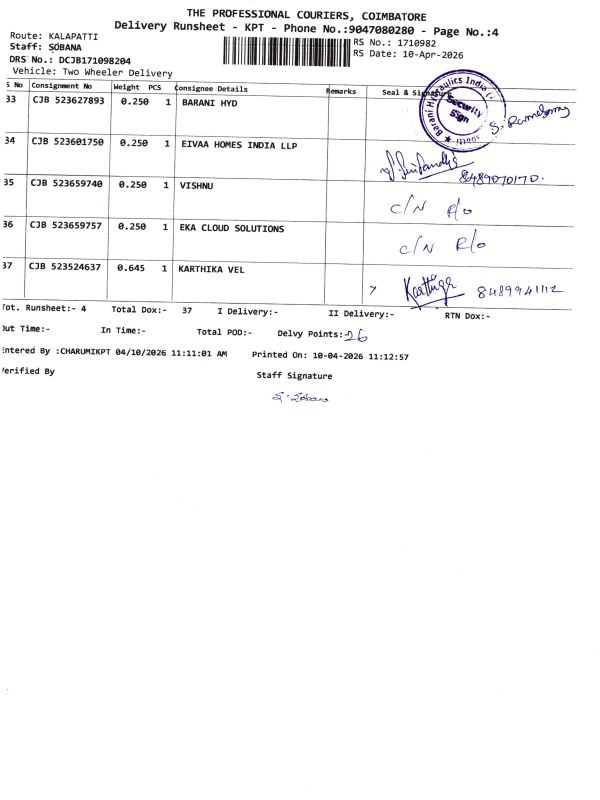 THE PROFESSIONAL COURIERS, COIMBATORE
Delivery Runsheet - KPT - Phone No.:9047080280 - Page No.:4
Route: KALAPATTI
RS No.: 1710982
Staff: SOBANA
RS Date: 10-Apr-2026
DRS No.: DCJB171098204
Vehicle: Two Wheeler Delivery
S No Consignment No Weight PCS Consignee Details Remarks Seal & Signature
33 CJB 523627893 0.250 1 BARANI HYD
Barani Hydraulics India
Security
Sign
34 CJB 523601750 0.250 1 EIVAA HOMES INDIA LLP
8489070170.
35 CJB 523659740 0.250 1 VISHNU C/N R/o
36 CJB 523659757 0.250 1 EKA CLOUD SOLUTIONS C/N R/o
37 CJB 523524637 0.645 1 KARTHIKA VEL Karthiga 8489941112
Tot. Runsheet:- 4 Total Dox:- 37 I Delivery:- II Delivery:- RTN Dox:-
Out Time:- In Time:- Total POD:- Delvy Points:- 26
Entered By :CHARUMIKPT 04/10/2026 11:11:01 AM Printed On: 10-04-2026 11:12:57
Verified By Staff Signature
S. Sobana